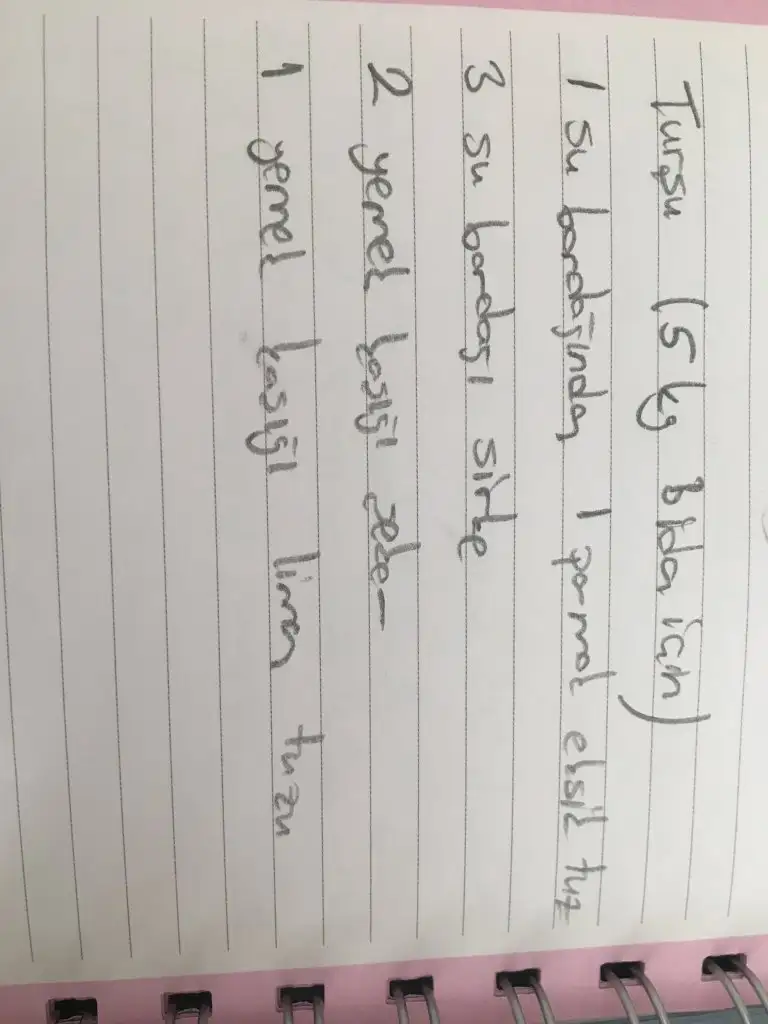 Turşu (5 kg Bidon için)
1 su bardağından 1 parmak eksik tuz
3 su bardağı sirke
2 yemek kaşığı şeker
1 yemek kaşığı limon tuzu